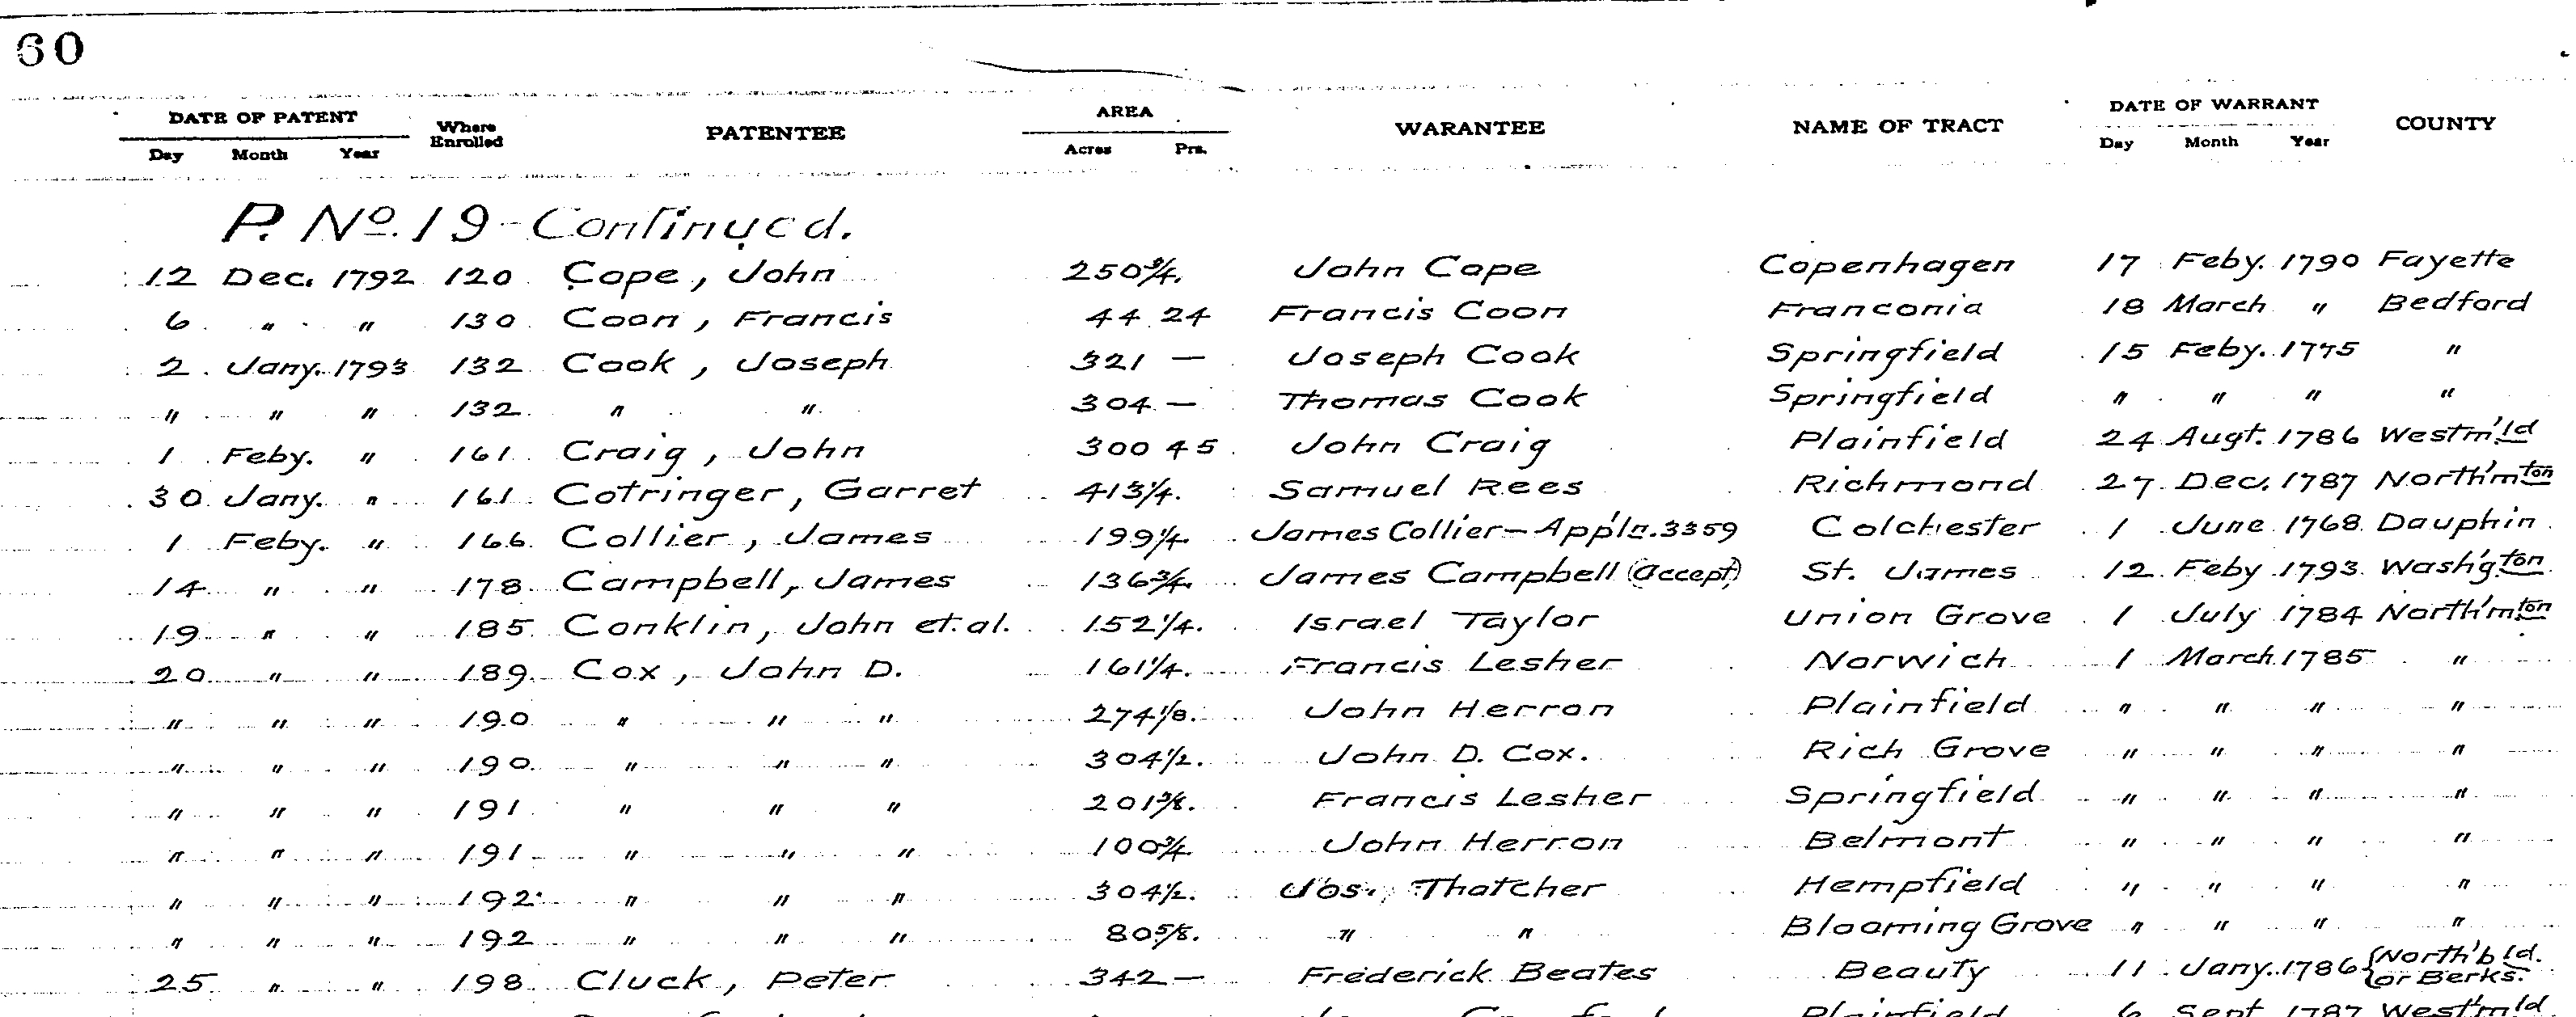 60
DATE OF PATENT Where Enrolled PATENTEE AREA WARANTEE NAME OF TRACT DATE OF WARRANT COUNTY
Day Month Year Acres Prs. Day Month Year
P. No. 19 - Continued.
12 Dec. 1792 120 Cope, John 250 3/4. John Cope Copenhagen 17 Feby. 1790 Fayette
6 " " 130 Coon, Francis 44 24 Francis Coon Franconia 18 March " Bedford
2 Jany. 1793 132 Cook, Joseph 321 — Joseph Cook Springfield 15 Feby. 1775 "
" " " 132 " " 304 — Thomas Cook Springfield " " " "
1 Feby. " 161 Craig, John 300 45 John Craig Plainfield 24 Augt. 1786 Westm'ld
30 Jany. " 161 Cotringer, Garret 413 1/4. Samuel Rees Richmond 27 Dec. 1787 North'mton
1 Feby. " 166 Collier, James 199 1/4. James Collier - Appln. 3359 Colchester 1 June 1768 Dauphin
14 " " 178 Campbell, James 136 3/4. James Campbell (accept) St. James 12 Feby 1793 Wash'gton
19 " " 185 Conklin, John et. al. 152 1/4. Israel Taylor Union Grove 1 July 1784 North'mton
20 " " 189 Cox, John D. 161 1/4. Francis Lesher Norwich 1 March 1785 "
" " " 190 " " " 274 1/8. John Herron Plainfield " " " "
" " " 190 " " " 304 1/2. John D. Cox. Rich Grove " " " "
" " " 191 " " " 201 3/8. Francis Lesher Springfield " " " "
" " " 191 " " " 100 3/4 John Herron Belmont " " " "
" " " 192 " " " 304 1/2. Jos. Thatcher Hempfield " " " "
" " " 192 " " " 80 5/8. " " Blooming Grove " " " "
25 " " 198 Cluck, Peter 342 — Frederick Beates Beauty 11 Jany. 1786 {North'bld. or Berks.
Plainfield 6 Sept. 1787 Westm'ld